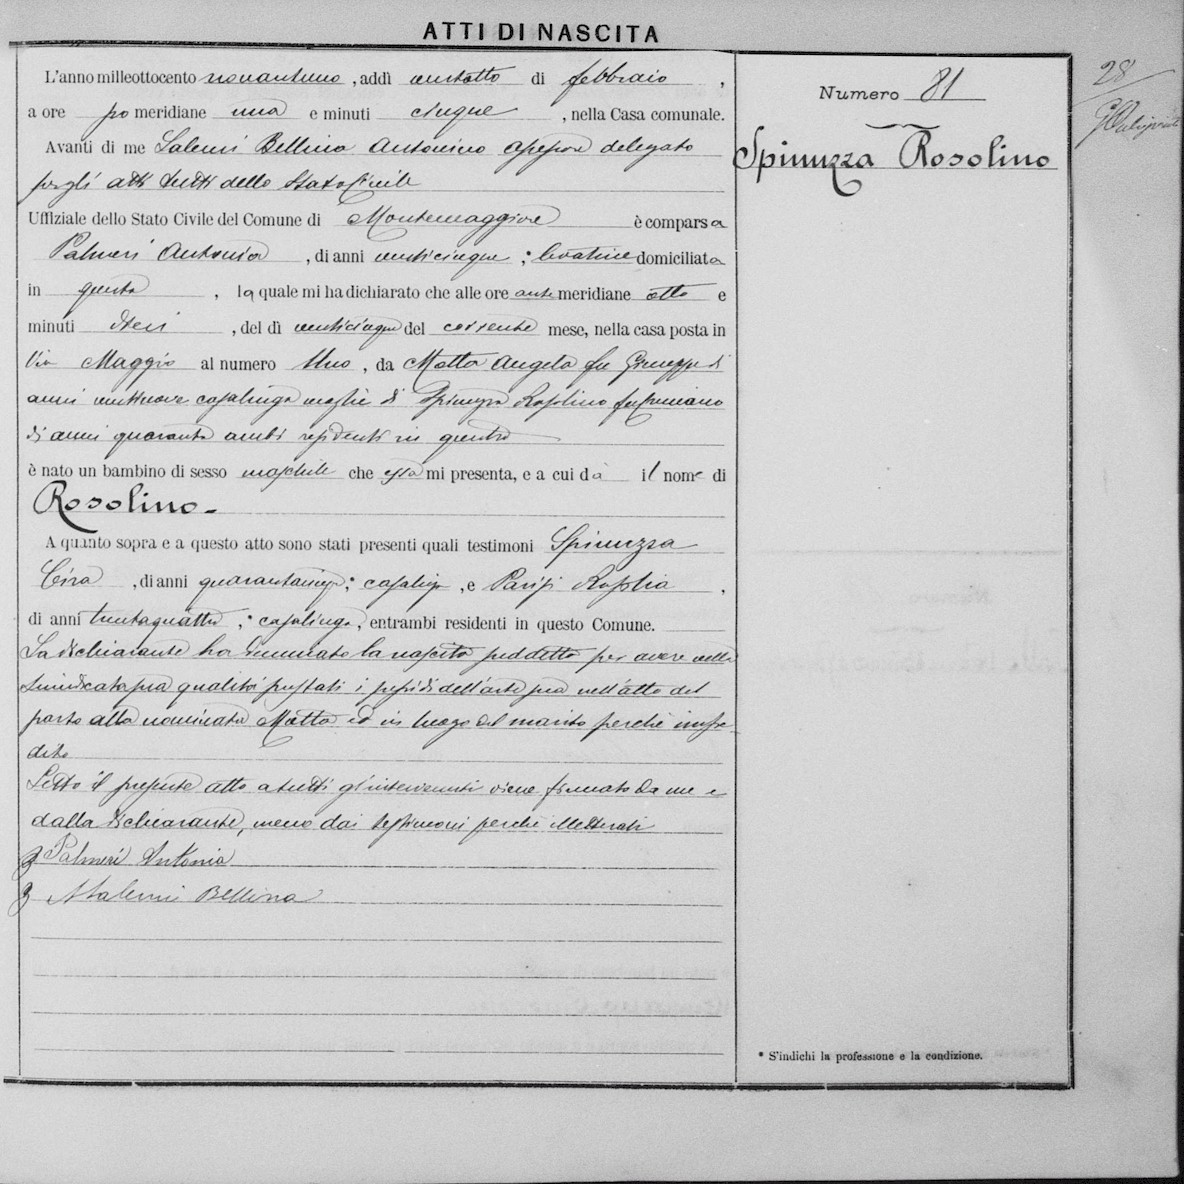 ATTI DI NASCITA
L'anno milleottocento novantuno, addì ventotto di febbraio,
a ore po meridiane una e minuti cinque, nella Casa comunale.
Avanti di me Salemi Bellina Antonino assessore delegato
per gli atti tutti dello Stato Civile
Uffiziale dello Stato Civile del Comune di Montemaggiore è comparsa
Palmeri Antonia, di anni venticinque; levatrice domiciliata
in questa, la quale mi ha dichiarato che alle ore ante meridiane otto e
minuti dieci, del dì venticinque del corrente mese, nella casa posta in
Via Maggio al numero Uno, da Motta Angela fu Giuseppe di
anni ventinove casalinga moglie di Spinuzza Rosolino fu
di anni quaranta ambi residenti in questa
è nato un bambino di sesso maschile che essa mi presenta, e a cui dà il nome di
Rosolino.
A quanto sopra e a questo atto sono stati presenti quali testimoni Spinuzza
Cira, di anni; casalinga, e Parisi Rosolia,
di anni trentaquattro; casalinga, entrambi residenti in questo Comune.
La dichiarante ha denunciato la nascita suddetta per avere nella
sunindicata sua qualità prestati i presidi dell'arte sua nell'atto del
parto alla nominata Motta ed in luogo del marito perchè impe-
dito
Letto il presente atto a tutti gl'intervenuti viene firmato da me e
dalla dichiarante, meno dai testimoni perchè illetterati
Palmeri Antonia
A Salemi Bellina
Numero 81
Spinuzza Rosolino
* S'indichi la professione e la condizione.
28